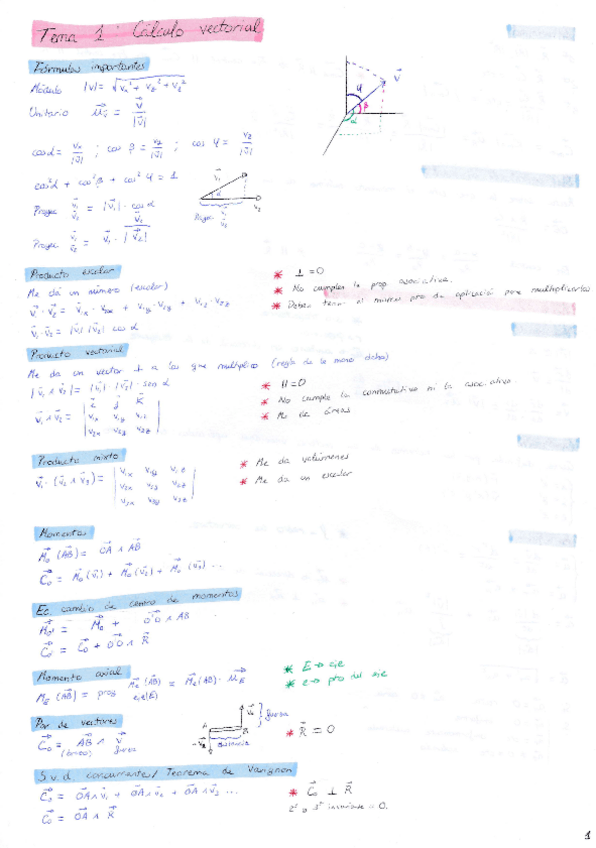 Tema 1: Cálculo vectorial
Fórmulas importantes
Módulo |v| = √(vx² + vy² + vz²)
Unitario u⃗v = v⃗/|v⃗|
cos α = vx/|v⃗| ; cos β = vy/|v⃗| ; cos φ = vz/|v⃗|
cos²α + cos²β + cos²φ = 1
Proyec v⃗1/v⃗2 = |v⃗1| · cos α
Proyec v⃗1/v⃗2 = v⃗1 · v⃗2/|v⃗2|
Producto escalar
Me da un número (escalar)
v⃗1 · v⃗2 = v1x · v2x + v1y · v2y + v1z · v2z
v⃗1 · v⃗2 = |v⃗1| |v⃗2| cos α
* ⊥ = 0
* No cumplen la prop. asociativa.
* Deben tener el mismo pto de aplicación para multiplicarlos
Producto vectorial
Me da un vector ⊥ a los que multiplico (regla de la mano dcha)
|v⃗1 ∧ v⃗2| = |v⃗1| · |v⃗2| · sen α
v⃗1 ∧ v⃗2 = | i j k |
v1x v1y v1z
v2x v2y v2z
* II = 0
* No cumple la conmutativa ni la asociativa.
* Me da áreas
Producto mixto
v⃗1 · (v⃗2 ∧ v⃗3) = | v1x v1y v1z |
v2x v2y v2z
v3x v3y v3z
* Me da volúmenes
* Me da un escalar
Momentos
M⃗o (AB) = OA ∧ AB
C⃗o = M⃗o (v⃗1) + M⃗o (v⃗2) + M⃗o (v⃗3) ...
Ec. cambio de centro de momentos
M⃗o' = M⃗o + O'O ∧ AB
C⃗o' = C⃗o + O'O ∧ R⃗
Momento axial
M⃗E (AB) = proy M⃗e (AB) = M⃗e (AB) · u⃗E
e, e(E)
* E → eje
* e → pto del eje
Par de vectores
C⃗o = AB ∧ v⃗
(brazo) fuerza
* R⃗ = 0
S.v.d. concurrente / Teorema de Varignon
C⃗o = OA ∧ v⃗1 + OA ∧ v⃗2 + OA ∧ v⃗3 ...
C⃗o = OA ∧ R⃗
* C⃗o ⊥ R⃗
invariante = 0.
1